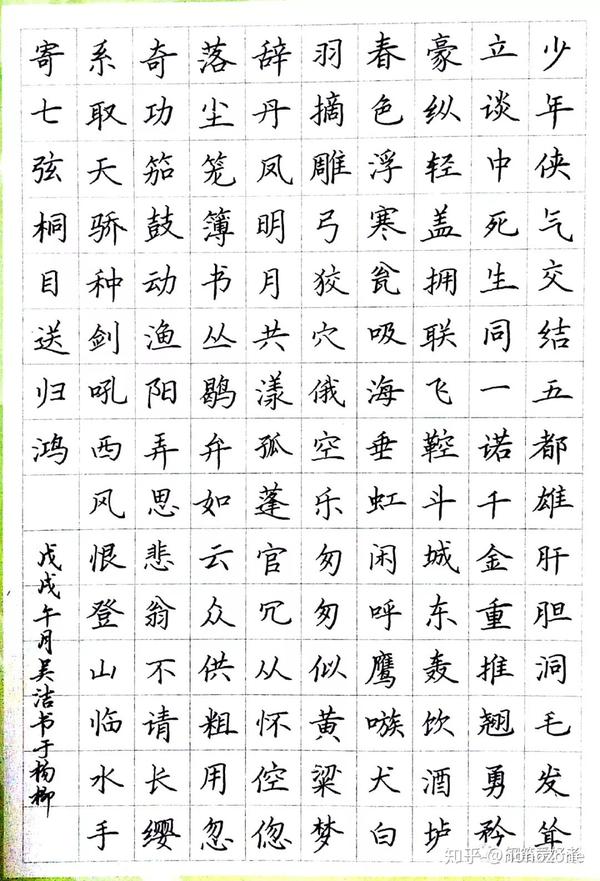 少年侠气交结五都雄肝胆洞毛发耸
立谈中死生同一诺千金重推翘勇矜
豪纵轻盖拥联飞鞚斗城东轰饮酒垆
春色浮寒瓮吸海垂虹闲呼鹰嗾犬白
羽摘雕弓狡穴俄空乐匆匆似黄粱梦
辞丹凤明月共漾孤蓬官冗从怀倥偬
落尘笼簿书丛鹖弁如云众供粗用忽
奇功笳鼓动渔阳弄思悲翁不请长缨
系取天骄种剑吼西风恨登山临水手
寄七弦桐目送归鸿
戊戌午月吴洁书于杨柳
知乎 @nonozone